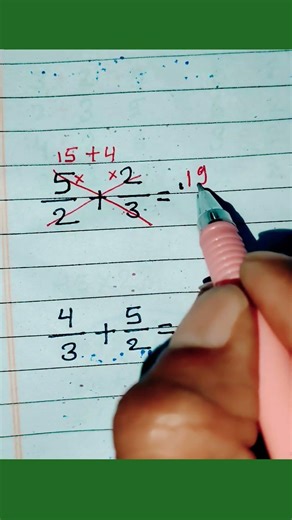 15 + 4
5/2 + 2/3 = .19
4/3 + 5/2 =